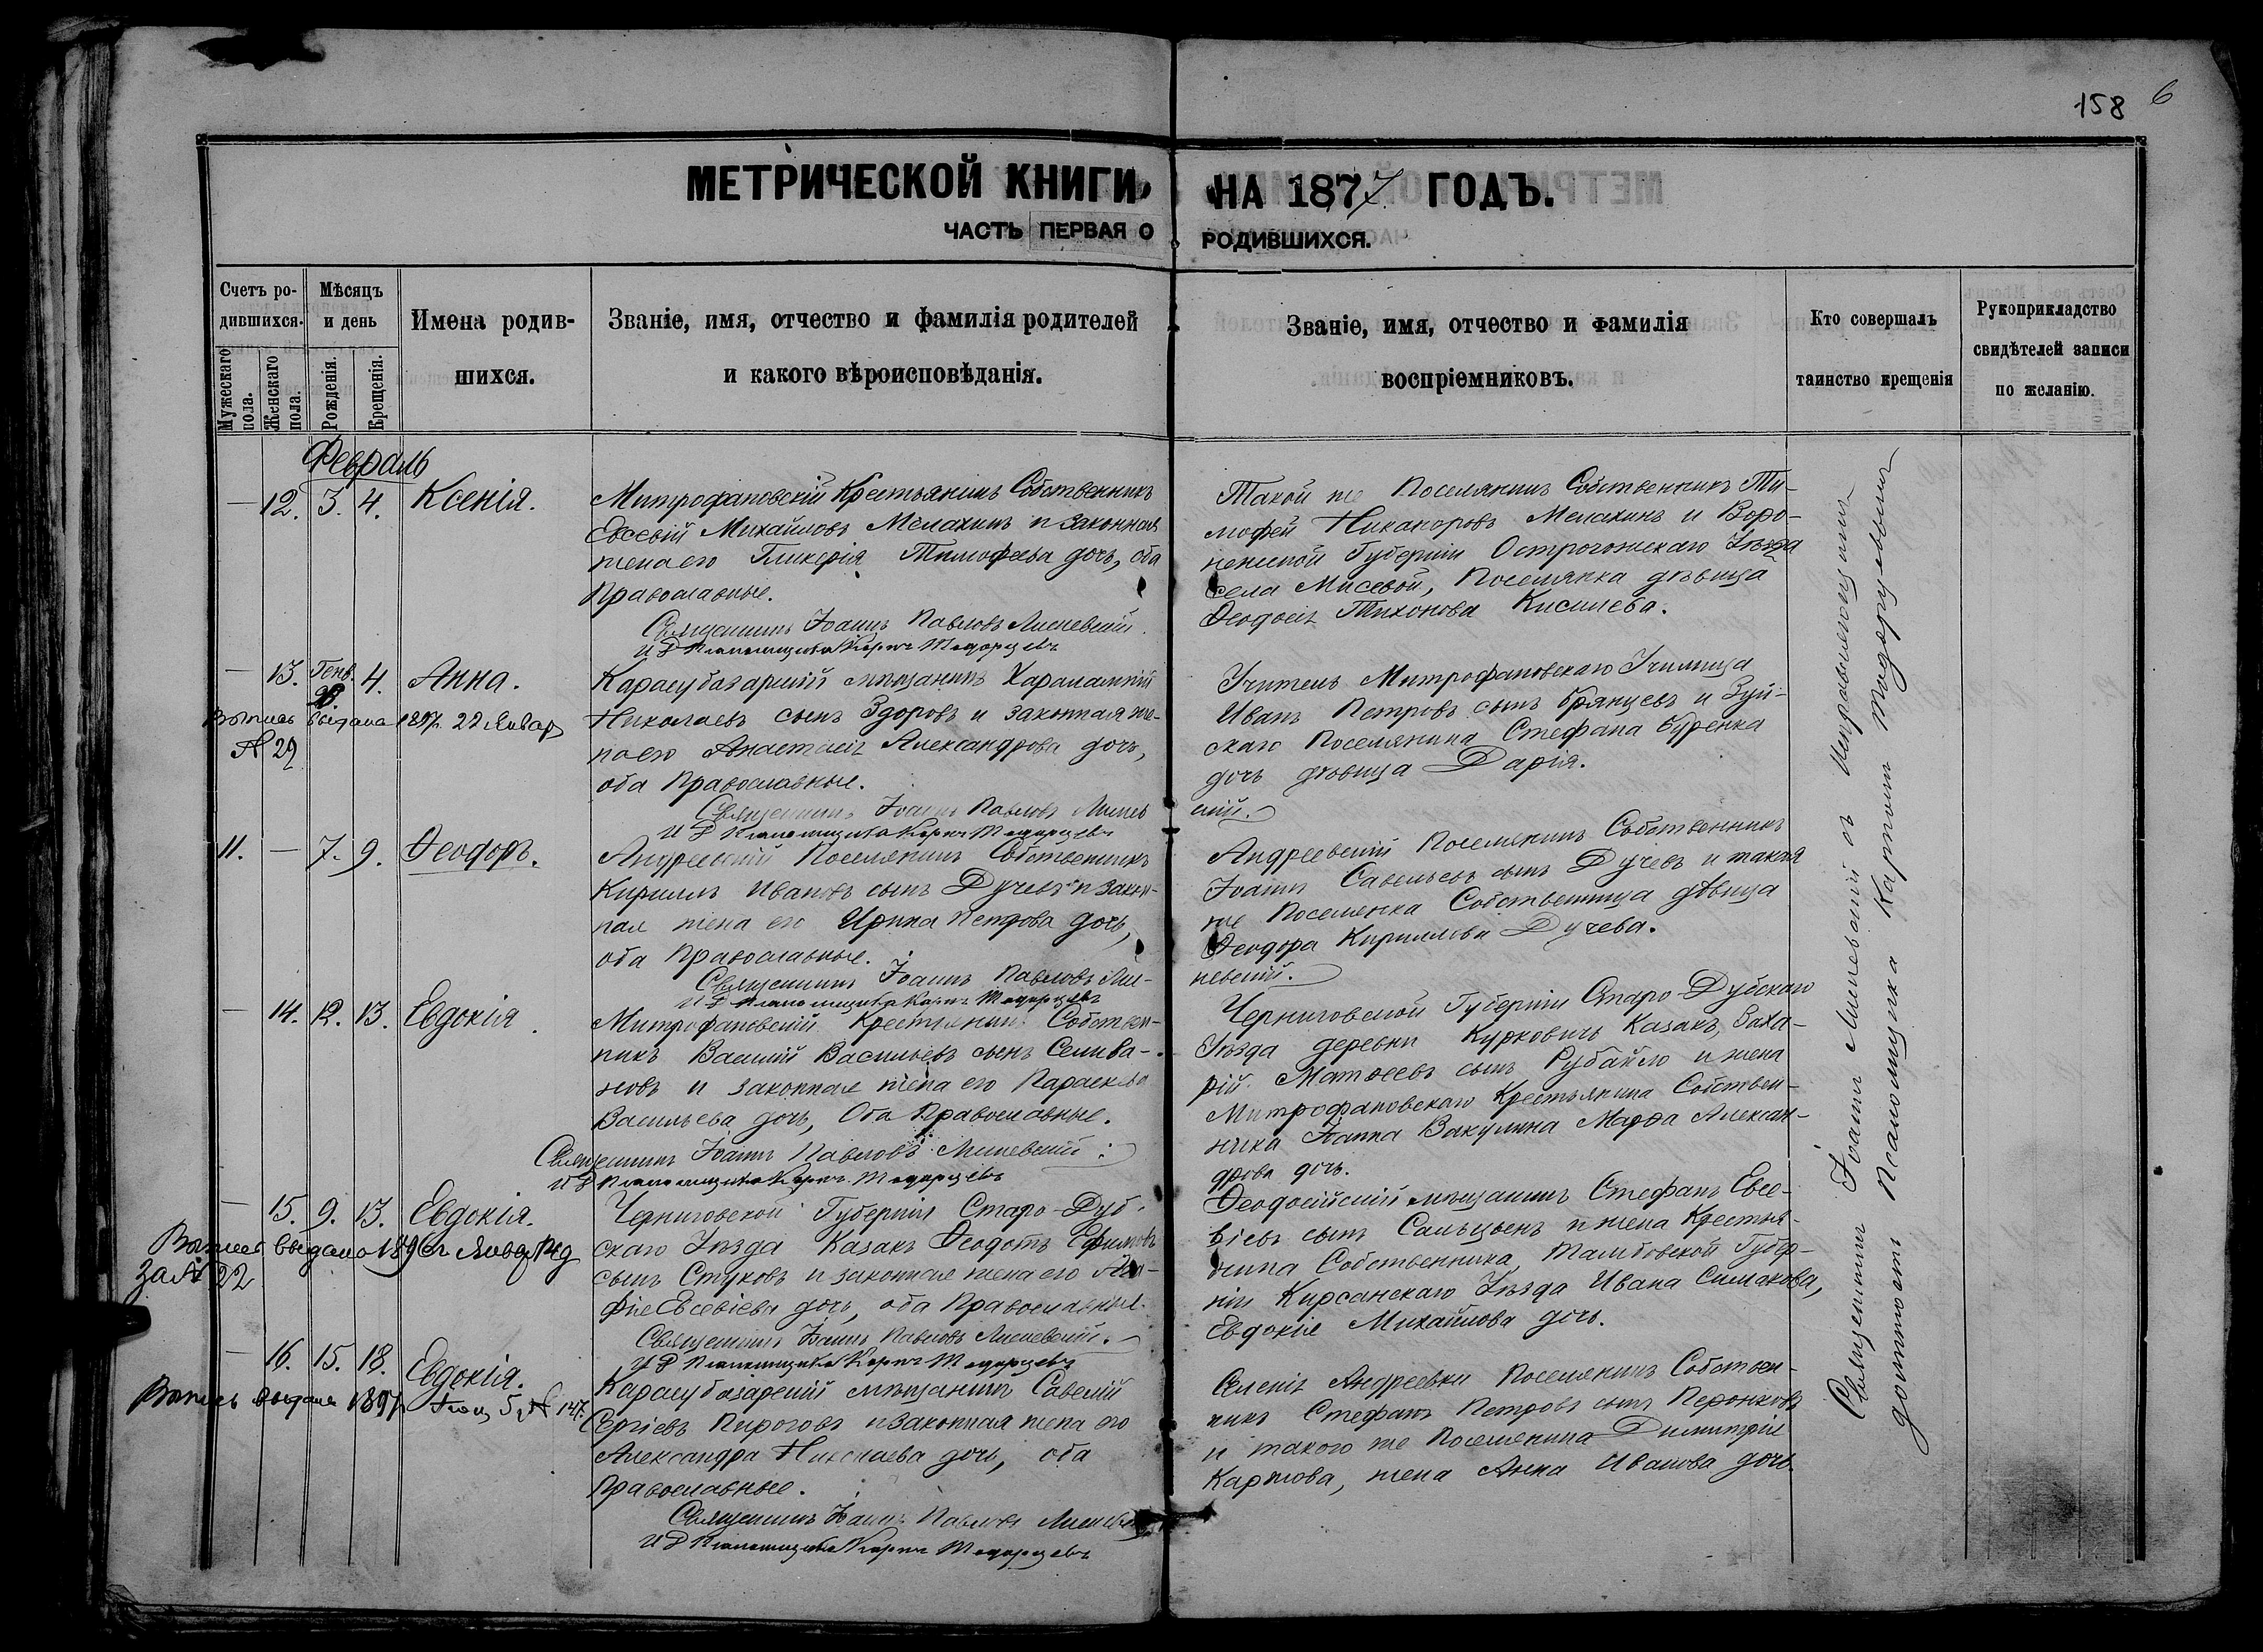 158 6
МЕТРИЧЕСКОЙ КНИГИ НА 1877 ГОДЪ.
ЧАСТЬ ПЕРВАЯ О РОДИВШИХСЯ.
Счетъ ро-
дившихся.
Мужескаго пола.
Женскаго пола.
Мѣсяцъ
и день
Рожденія.
Крещенія.
Имена родив-
шихся.
Званіе, имя, отчество и фамилія родителей
и какого вѣроисповѣданія.
Званіе, имя, отчество и фамилія
воспріемниковъ.
Кто совершалъ
таинство крещенія
Рукоприкладство
свидѣтелей записи
по желанію.
Февраль
— 12. 3. 4. Ксенія.
Митрофановскій Крестьянинъ Собственникъ
Евсевій Михайловъ Мелахинъ и законная
жена его Гликерія Тимофеева дочь, оба
Православные.
Священникъ Іоаннъ Павловъ
И Д Псаломщика Карпъ
Такой же Поселянинъ Собственникъ Ти-
мофей Никаноровъ Мелахинъ и Воро-
нежской Губерніи Острогожскаго Уѣзда
села Поселянка дѣвица
Ѳеодосія Тихонова Киселева.
— 13. Генв. 4. Анна.
Выпись выдана 1897. 22 Январ
№ 29
Карасубазарскій мѣщанинъ Харалампій
Николаевъ сынъ Здоровъ и законная же-
на его Анастасія Александрова дочь,
оба Православные.
Священникъ Іоаннъ Павловъ
И Д Псаломщика Карпъ
Учитель Митрофановскаго Училища
Иванъ Петровъ сынъ Брянцевъ и Зуй-
скаго Поселянина Стефана Буренка
дочь дѣвица Дарія.
11. — 7. 9. Ѳеодоръ.
Андреевскій Поселянинъ Собственникъ
Кириллъ Ивановъ сынъ Дучевъ и закон-
ная жена его Ирина Петрова дочь,
оба Православные.
Священникъ Іоаннъ Павловъ
И Д Псаломщика Карпъ
Андреевскій Поселянинъ Собственникъ
Іоаннъ Савельевъ сынъ Дучевъ и такая
же Поселянка Собственница дѣвица
Ѳеодора Кириллова Дучева.
— 14. 12. 13. Евдокія.
Митрофановскій Крестьянинъ Собствен-
никъ Василій Васильевъ сынъ Селива-
новъ и законная жена его Параскева
Васильева дочь, Оба Православные.
Священникъ Іоаннъ Павловъ
И Д Псаломщика Карпъ
Черниговской Губерніи Старо-Дубскаго
Уѣзда деревни Курковичъ Казакъ, Заха-
рій Матѳеевъ сынъ Рубайло и жена
Митрофановскаго Крестьянина Собствен-
ника Іоанна Вакулина Марѳа Алексан-
дрова дочь.
— 15. 9. 13. Евдокія.
Выпись выдана 1896 г. Январ
за № 22
Черниговской Губерніи Старо-Дуб-
скаго Уѣзда Казакъ Ѳеодотъ Ефимовъ
сынъ Стуковъ и законная жена его Ага-
фія Евсевіева дочь, оба Православные.
Священникъ Іоаннъ Павловъ
И Д Псаломщика Карпъ
Ѳеодосійскій мѣщанинъ Стефанъ Евсе-
віевъ сынъ и жена Крестья-
нина Собственника, Тамбовской Губер-
ніи Кирсанскаго Уѣзда Ивана Симакова,
Евдокія Михайлова дочь.
— 16. 15. 18. Евдокія.
Выпись выдана 1897 5 № 147.
Карасубазарскій мѣщанинъ Савелій
Сергіевъ Пироговъ и законная жена его
Александра Николаева дочь, оба
Православные.
Священникъ Іоаннъ Павловъ
И Д Псаломщика Карпъ
Селенія Андреевки Поселянинъ Собствен-
никъ Стефанъ Петровъ сынъ
и такого же Поселянина Димитрія
Карпова, жена Анна Иванова дочь.
Священникъ Іоаннъ съ Исправляющимъ
должность Псаломщика Карпомъ